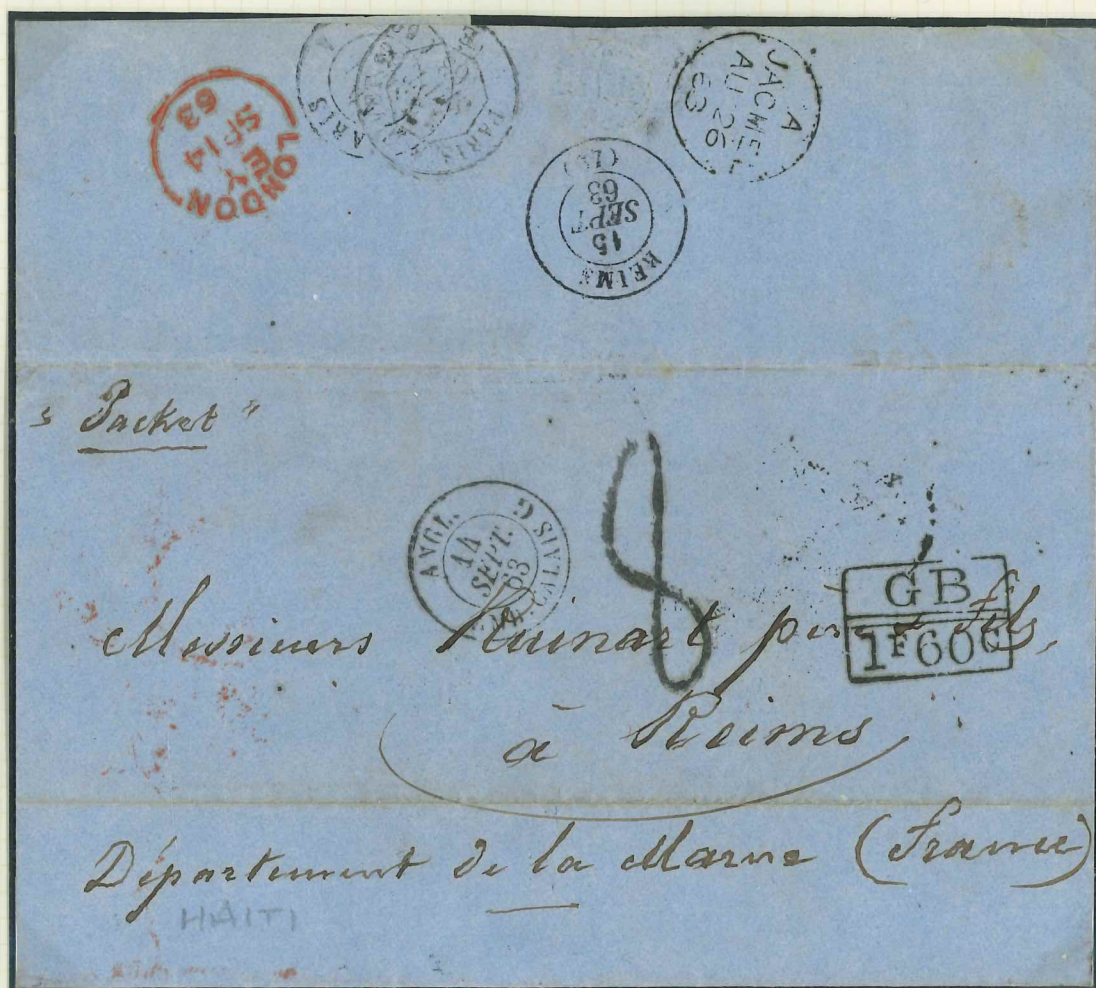 LONDON
EY
SP 14
63
PARIS
PARIS
A
JACMEL
AU 26
63
REIMS
15
SEPT
63
(49)
"Packet"
ANGL.
14
SEPT.
63
CALAIS G
8
GB
1F60C
Messieurs Ruinart père & Fils,
à Reims
Département de la Marne (France)
HAITI